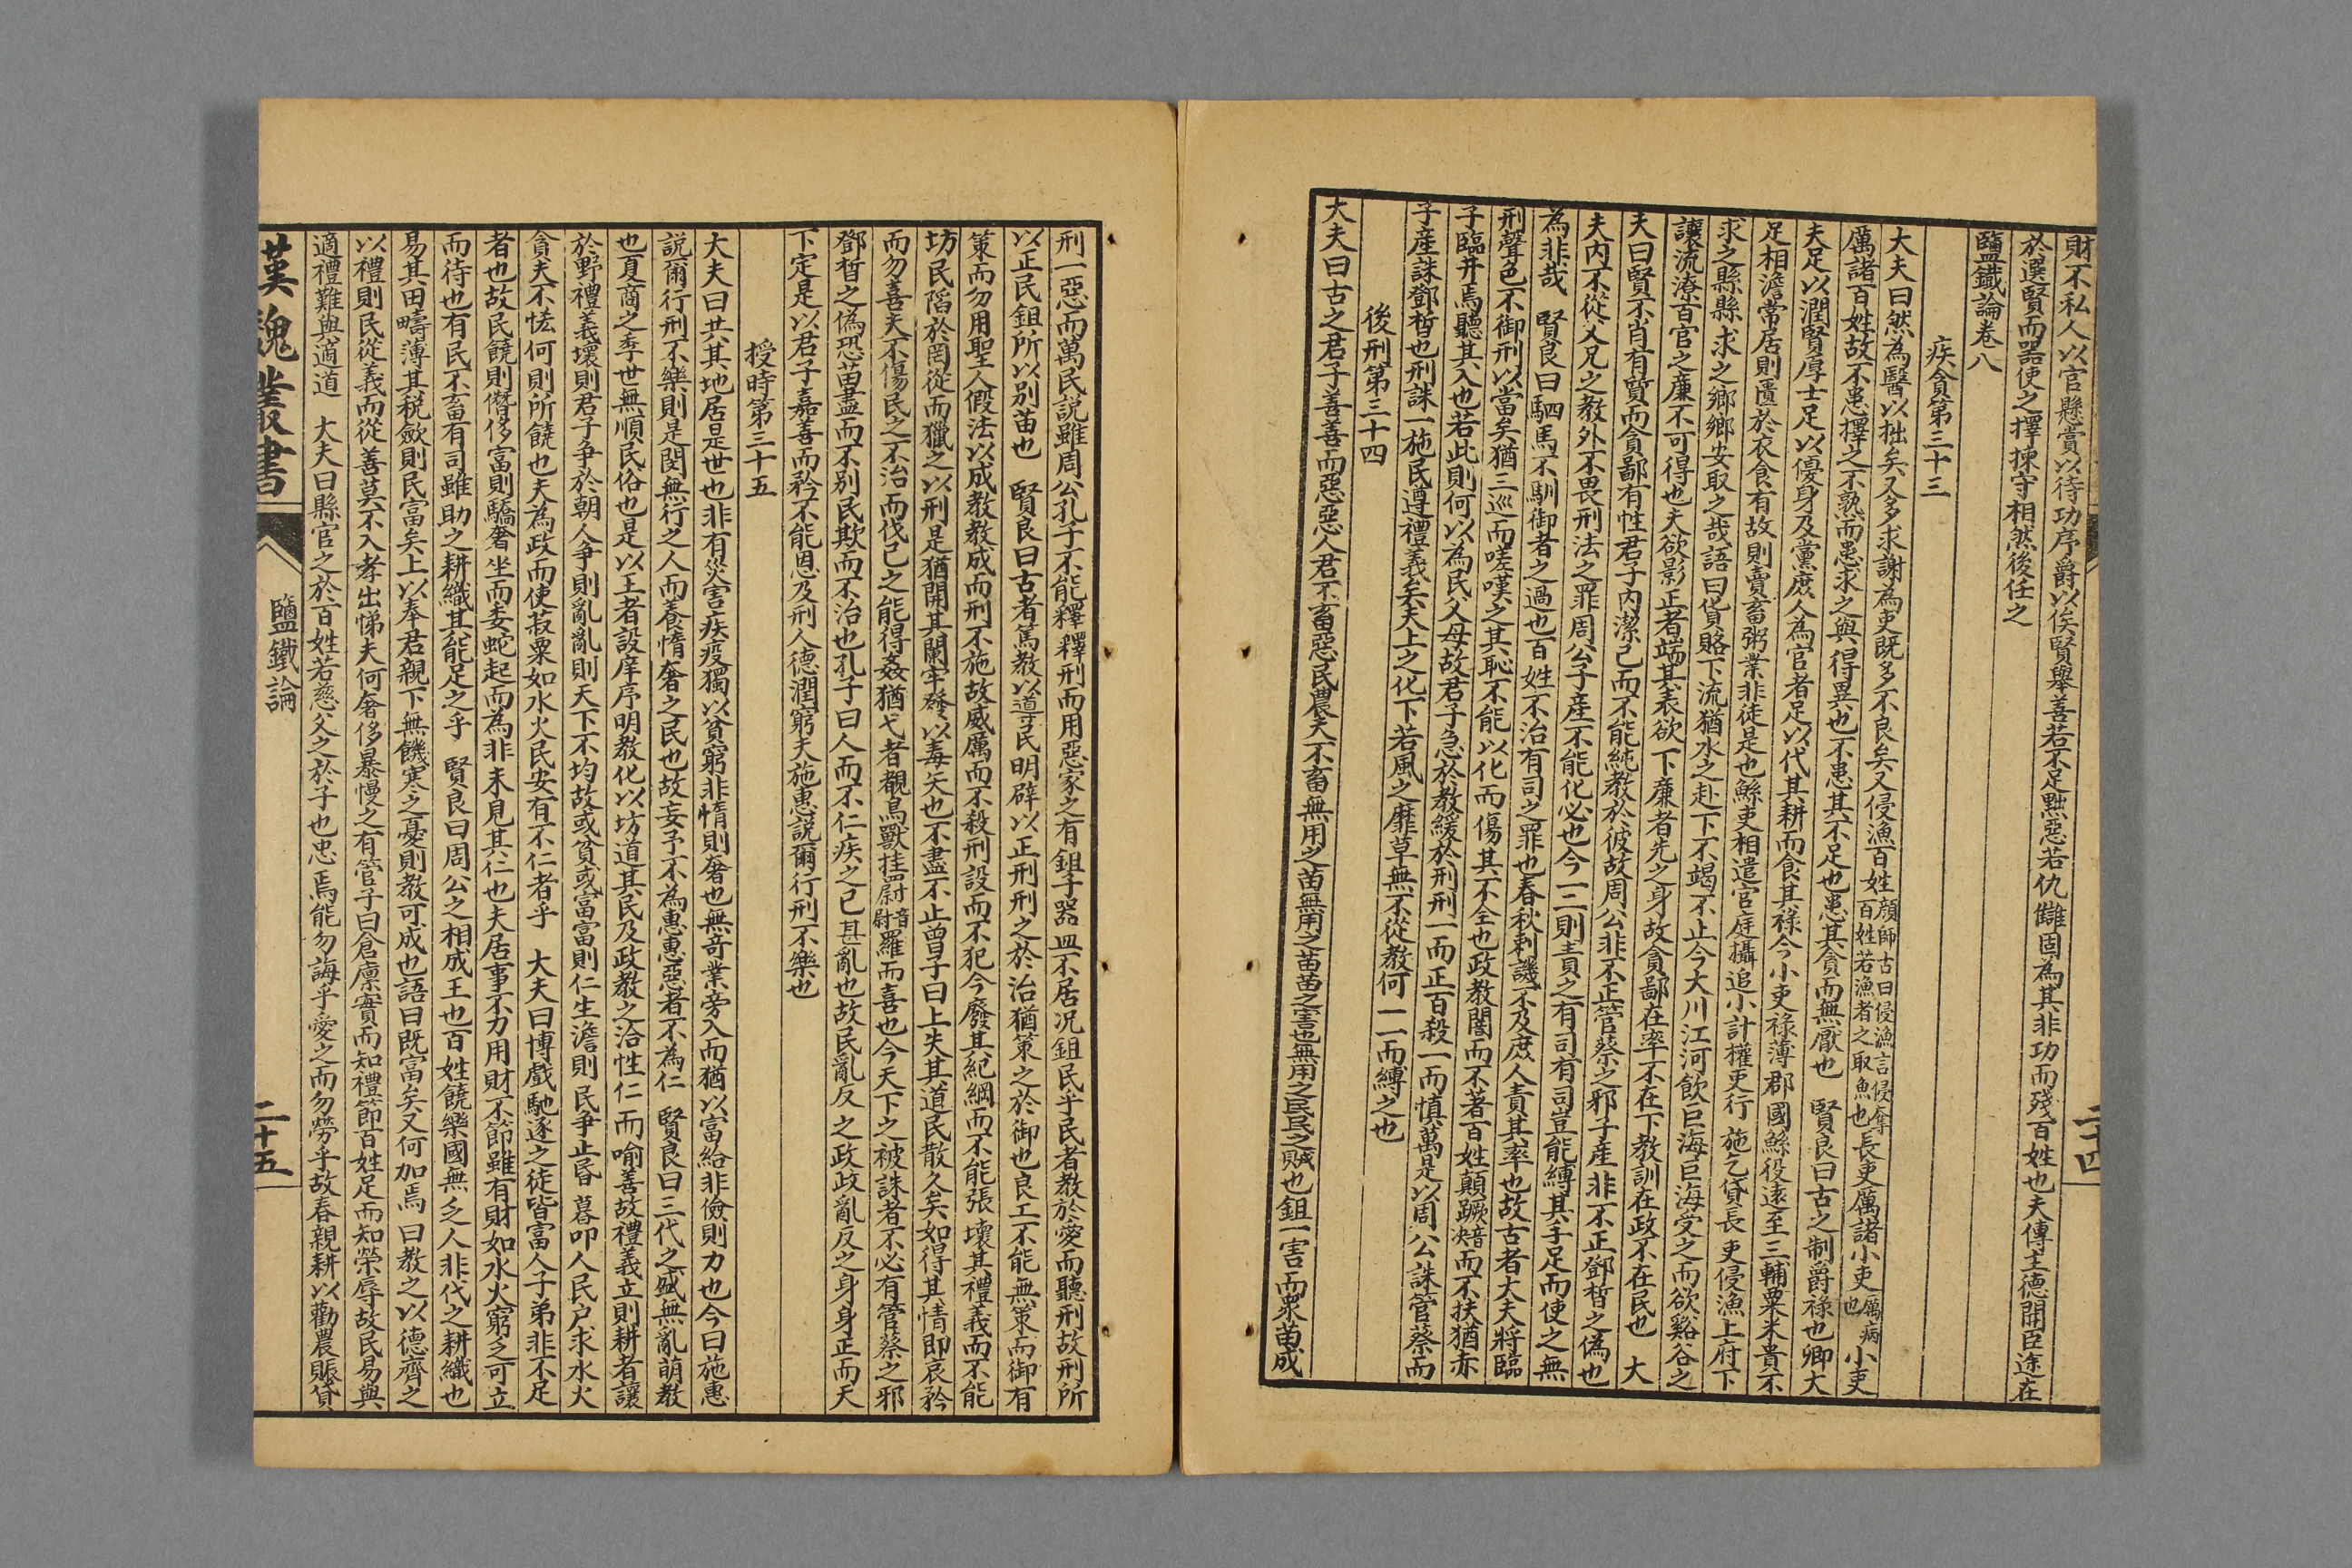 財不私人以官懸賞以待功序爵以俟賢舉善若不足黜惡若仇讎固為其非功而殘百姓也夫傅主德開臣途在
於選賢而器使之擇揀守相然後任之
鹽鐵論卷八
疾貪第三十三
大夫曰然為醫以拙矣又多求謝為吏既多不良矣又侵漁百姓顏師古曰侵漁言侵奪百姓若漁者之取魚也長吏厲諸小吏厲病也小吏
厲諸百姓故不患擇之不熟而患求之與得異也不患其不足也患其貪而無厭也　賢良曰古之制爵祿也卿大
夫足以潤賢厚士足以優身及黨庶人為官者足以代其耕而食其祿今小吏祿薄郡國繇役遠至三輔粟米貴不
足相澹常居則匱於衣食有故則賣畜粥業非徒是也繇吏相遣官庭攝追小計權吏行施乞貸長吏侵漁上府下
求之縣縣求之鄉鄉安取之哉語曰貨賂下流猶水之赴下不竭不止今大川江河飲巨海巨海受之而欲谿谷之
讓流潦百官之廉不可得也夫欲影正者端其表欲下廉者先之身故貪鄙在率不在下教訓在政不在民也　大
夫曰賢不肖有質而貪鄙有性君子內潔己而不能純教於彼故周公非不正管蔡之邪子產非不正鄧皙之偽也
夫內不從父兄之教外不畏刑法之罪周公子產不能化必也今一二則責之有司有司豈能縛其手足而使之無
為非哉　賢良曰駟馬不馴御者之過也百姓不治有司之罪也春秋刺譏不及庶人責其率也故古者大夫將臨
刑聲色不御刑以當矣猶三巡而嗟嘆之其恥不能以化而傷其不全也政教闇而不著百姓顛蹶而不扶猶赤
子臨井焉聽其入也若此則何以為民父母故君子急於教緩於刑刑一而正百殺一而慎萬是以周公誅管蔡而
子產誅鄧皙也刑誅一施民遵禮義矣夫上之化下若風之靡草無不從教何一一而縛之也
後刑第三十四
大夫曰古之君子善善而惡惡人君不畜惡民農夫不畜無用之苗無用之苗苗之害也無用之民民之賊也鉏一害而眾苗成
刑一惡而萬民說雖周公孔子不能釋釋刑而用惡家之有鉏子器皿不居况鉏民乎民者教於愛而聽刑故刑所
以正民鉏所以別苗也　賢良曰古者篤教以導民明辟以正刑刑之於治猶策之於御也良工不能無策而御有
策而勿用聖人假法以成教教成而刑不施故威厲而不殺刑設而不犯今廢其紀綱而不能張壞其禮義而不能
坊民陷於罔從而獵之以刑是猶開其闌牢發以毒矢也不盡不止曾子曰上失其道民散久矣如得其情即哀矜
而勿喜夫不傷民之不治而伐己之能得姦猶弋者覩鳥獸挂罻音尉羅而喜也今天下之被誅者不必有管蔡之邪
鄧皙之偽恐苗盡而不別民欺而不治也孔子曰人而不仁疾之已甚亂也故民亂反之政政亂反之身身正而天
下定是以君子嘉善而矜不能恩及刑人德潤窮夫施惠說爾行刑不樂也
授時第三十五
大夫曰共其地居是世也非有災害疾疫獨以貧窮非惰則奢也無奇業旁入而猶以富給非儉則力也今曰施惠
說爾行刑不樂則是閔無行之人而養惰奢之民也故妄予不為惠惠惡者不為仁　賢良曰三代之盛無亂萌教
也夏商之季世無順民俗也是以王者設庠序明教化以坊道其民及政教之洽性仁而喻善故禮義立則耕者讓
於野禮義壞則君子爭於朝人爭則亂亂則天下不均故或貧或富富則仁生澹則民爭止昏暮叩人民戶求水火
貪夫不恡何則所饒也夫為政而使菽粟如水火民安有不仁者乎　大夫曰博戲馳逐之徒皆富人子弟非不足
者也故民饒則僭侈富則驕奢坐而委蛇起而為非未見其仁也夫居事不力用財不節雖有財如水火窮乏可立
而待也有民不畜有司雖助之耕織其能足之乎　賢良曰周公之相成王也百姓饒樂國無乏人非代之耕織也
易其田疇薄其稅歛則民富矣上以奉君親下無饑寒之憂則教可成也語曰既富矣又何加焉曰教之以德齊之
以禮則民從義而從善莫不入孝出悌夫何奢侈暴慢之有管子曰倉廩實而知禮節百姓足而知榮辱故民易與
適禮難與適道　大夫曰縣官之於百姓若慈父之於子也忠焉能勿誨乎愛之而勿勞乎故春親耕以勸農賑貸
漢魏叢書　鹽鐵論　二十五